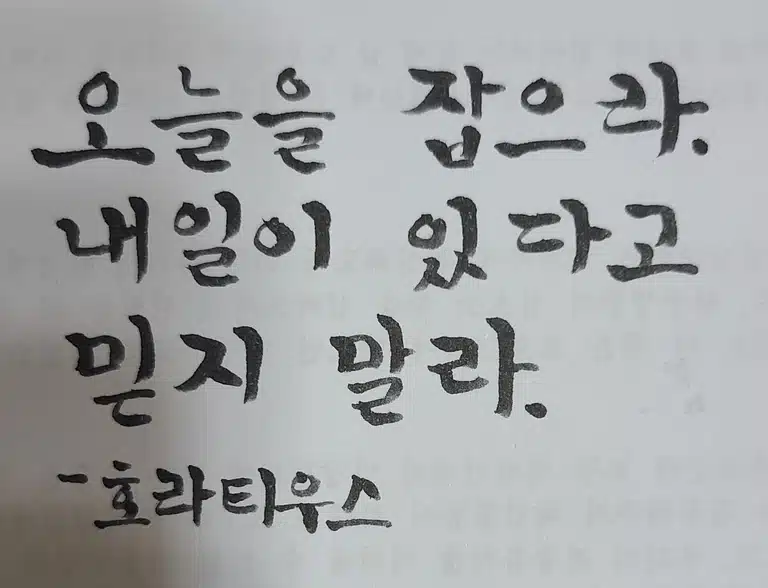 오늘을 잡으라.
내일이 있다고
믿지 말라.
-호라티우스